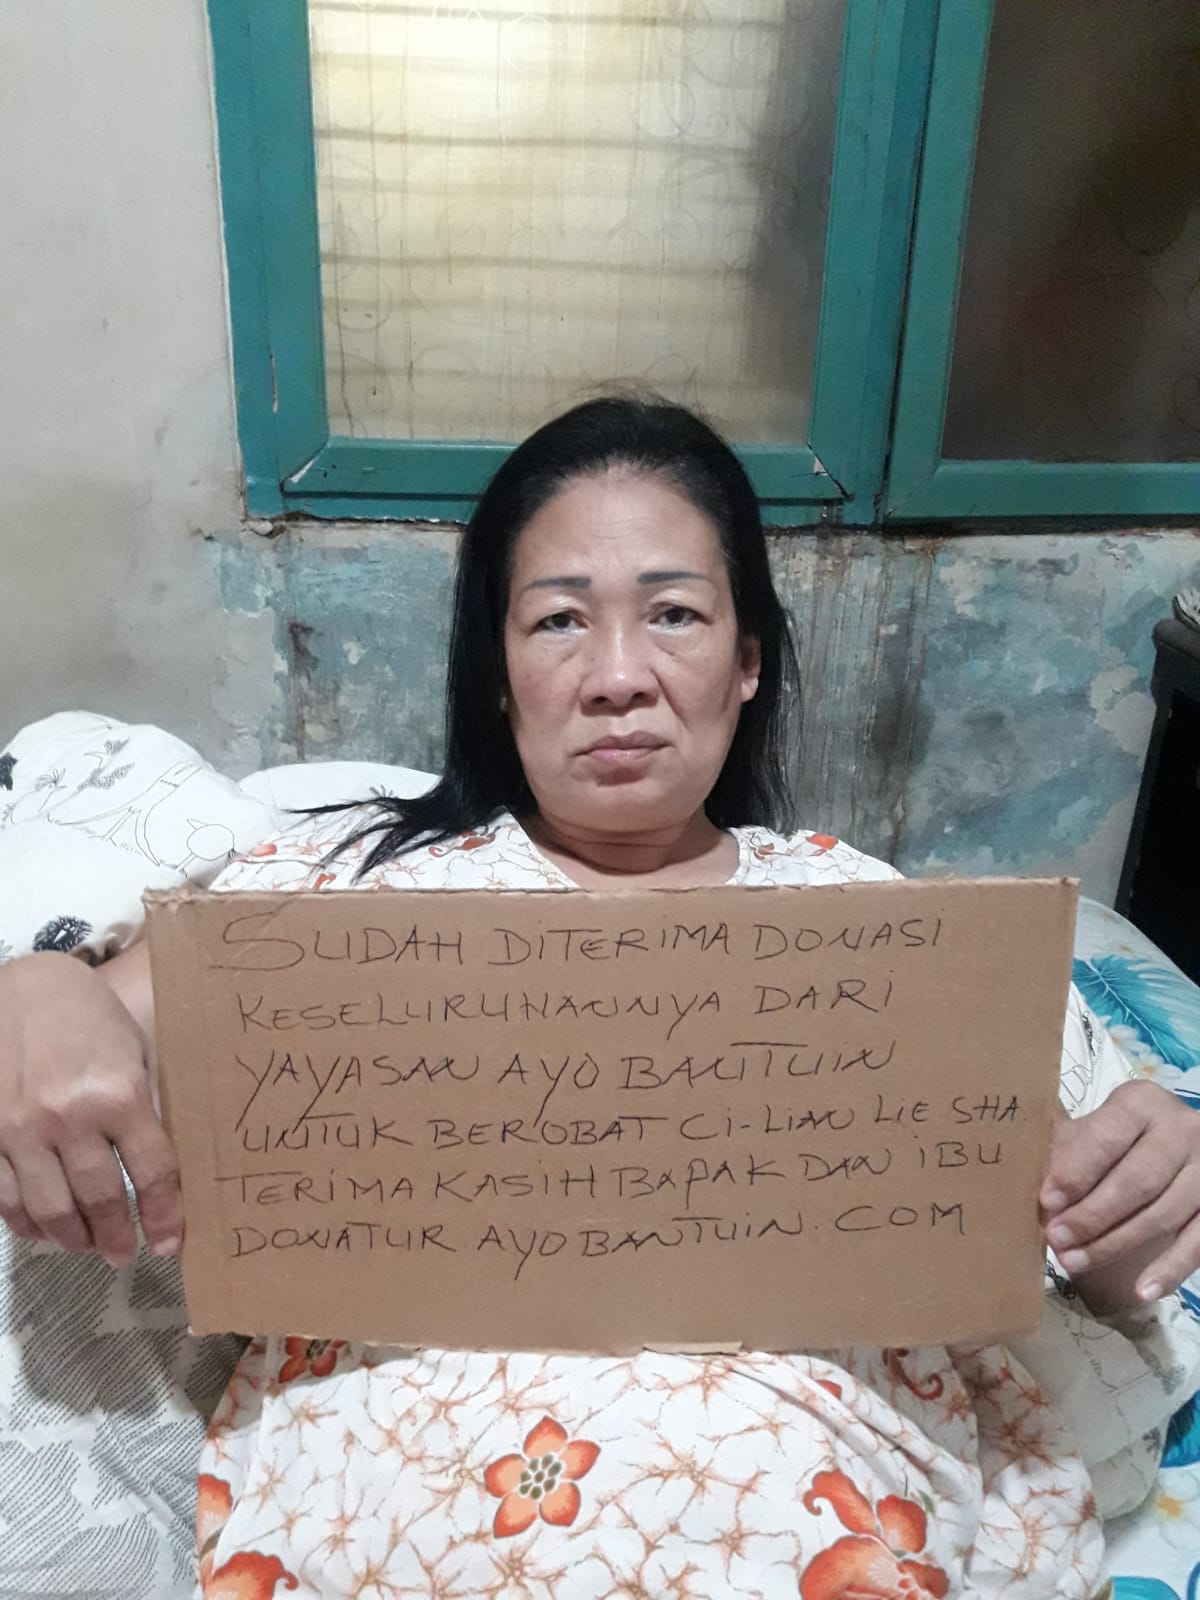 SUDAH DITERIMA DONASI
KESELURUHANNYA DARI
YAYASAN AYO BANTUIN
UNTUK BEROBAT CI-LIAN LIE SHA
TERIMA KASIH BAPAK DAN IBU
DONATUR AYOBANTUIN.COM